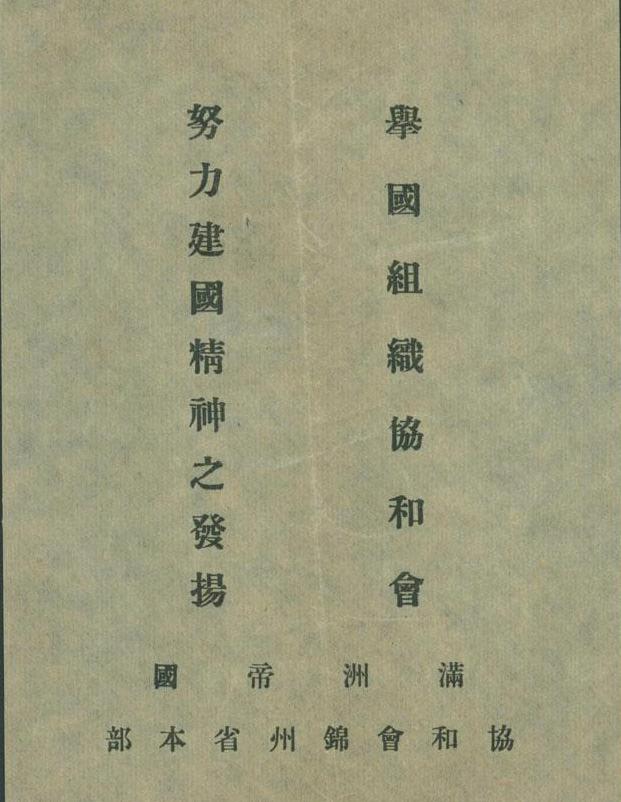 舉國組織協和會
努力建國精神之發揚
滿洲帝國
協和會錦州省本部